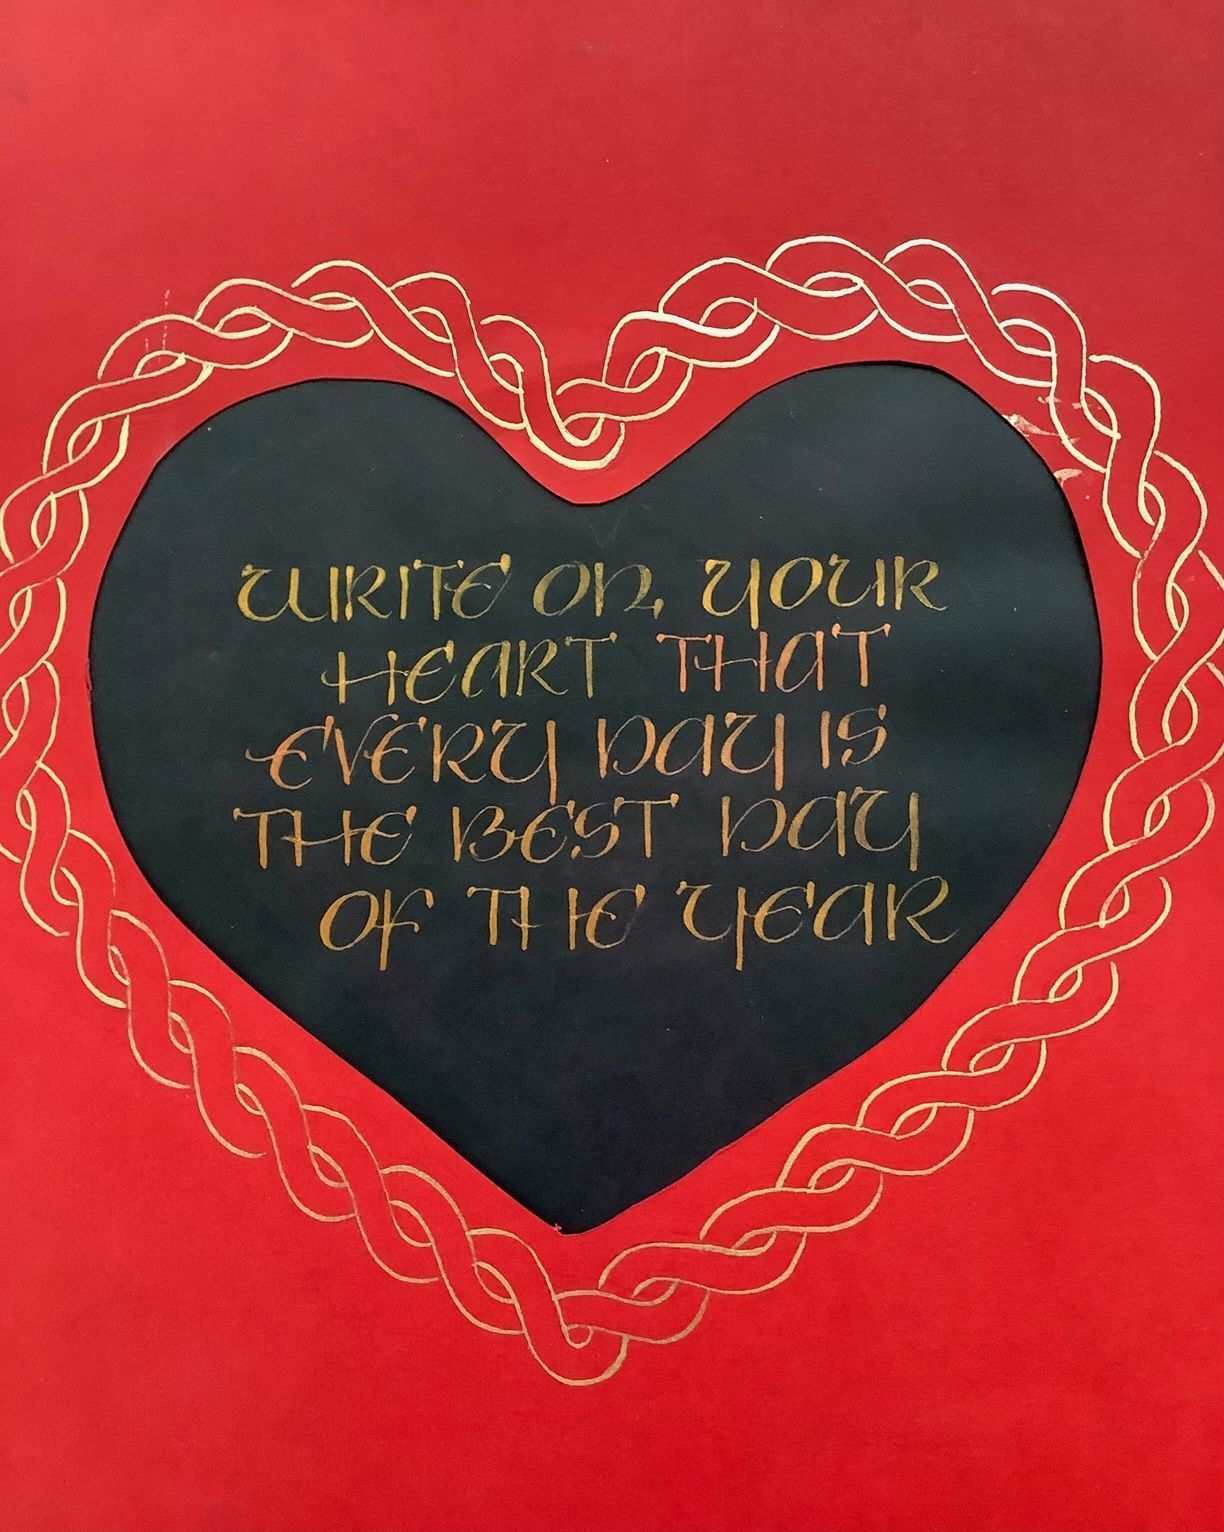 WRITE ON, YOUR
HEART THAT
EVERY DAY IS
THE BEST DAY
OF THE YEAR